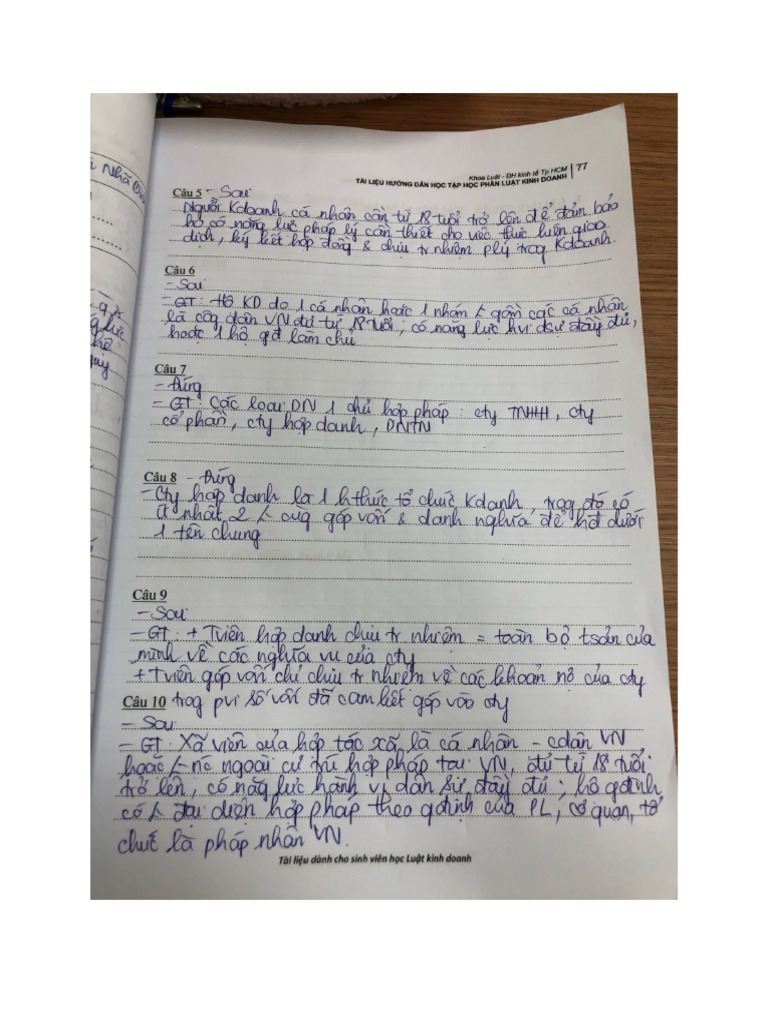 Khoa Luật - ĐH kinh tế Tp HCM | 77
TÀI LIỆU HƯỚNG DẪN HỌC TẬP HỌC PHẦN LUẬT KINH DOANH
Câu 5 - Sai
Người Kdoanh cá nhân cần từ 18 tuổi trở lên để đảm bảo
họ có năng lực pháp lý cần thiết cho việc thực hiện giao
dịch, ký kết hợp đồng & chịu tr nhiệm plý trog Kdoanh.
Câu 6
- Sai
- GT: Hộ KD do 1 cá nhân hoặc 1 nhóm gồm các cá nhân
là côg dân VN đủ từ 18 tuổi, có năng lực hvi dsự đầy đủ,
hoặc 1 hộ gđ làm chủ
Câu 7
- Đúng
- GT: Các loại DN 1 chủ hợp pháp: cty TNHH, cty
cổ phần, cty hợp danh, DNTN
Câu 8 - Đúng
- Cty hợp danh là 1 hthức tổ chức Kdanh, trog đó có
ít nhất 2 cùg góp vốn & danh nghĩa để hđ dưới
1 tên chung
Câu 9
- Sai
- GT: + Tviên hợp danh chịu tr nhiệm = toàn bộ tsản của
mình về các nghĩa vụ của cty
+ Tviên góp vốn chỉ chịu tr nhiệm về các khoản nợ của cty
Câu 10 trog pvi số vốn đã cam kết góp vào cty
- Sai
- GT: Xã viên của hợp tác xã là cá nhân - cdân VN
hoặc nc ngoài cư trú hợp pháp tại VN, đủ từ 18 tuổi
trở lên, có năg lực hành vi dân sự đầy đủ; hộ gđình
có đại diện hợp pháp theo qđịnh của PL; cơ quan, tổ
chức là pháp nhân VN.
Tài liệu dành cho sinh viên học Luật kinh doanh